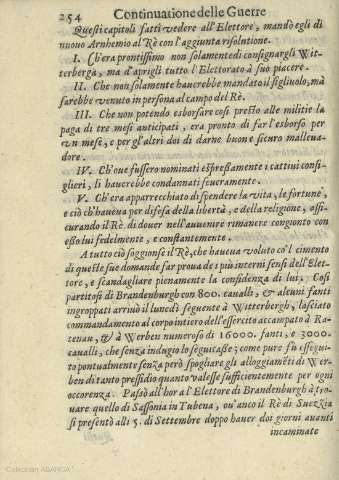 254 Continuatione delle Guerre
Questi capitoli fatti vedere all'Elettore, mandò egli di
nuouo Arnhemio al Rè con l'aggiunta risolutione.
I. Ch'era prontissimo non solamente di consignargli Wit-
terberga, mà d'aprigli tutto l'Elettorato à suo piacere.
II. Che non solamente haurebbe mandato il figliuolo, mà
sarebbe venuto in persona al campo del Rè.
III. Che non potendo esborsare così presto alle militie la
paga di tre mesi anticipati, era pronto di far l'esborso per
vn mese, e per gl'altri doi di darne buon e sicuro malleua-
dore.
IV. Ch'oue fussero nominati espressamente i cattiui consi-
glieri, li haurebbe condannati seueramente.
V. Ch'era apparrecchiato di spendere la vita, le fortune,
e ciò ch'haueua per difesa della libertà, e della religione, assi-
curando il Rè di douer nell'auuenire rimanere congionto con
esso lui fedelmente, e constantemente.
A tutto ciò soggionse il Rè, che haueua voluto co'l cimento
di queste sue domande far proua de i più interni sensi dell'Elet-
tore, e scandagliare pienamente la confidenza di lui. Così
partitosi di Brandenburgh con 800. caualli, & alcuni fanti
ingroppati arriuò il lunedì seguente à Witterbergh, lasciato
commandamento al corpo intiero dell'essercito accampato à Ra-
tenau, & à Werben numeroso di 16000. fanti, e 3000.
caualli, che senza indugio lo seguitasse; come pure fù essegui-
to pontualmente senza però spogliare gli alloggiamẽti di Wer-
ben di tanto pressidio quanto valesse sufficientemente per ogni
occorenza. Passò all'hor al l'Elettore di Brandenburgh à tro-
uare quello di Sassonia in Tubena, ou'anco il Rè di Suezzia
si presentò alli 5. di Settembre doppo hauer doi giorni auanti
incaminate
Colección ABANCA